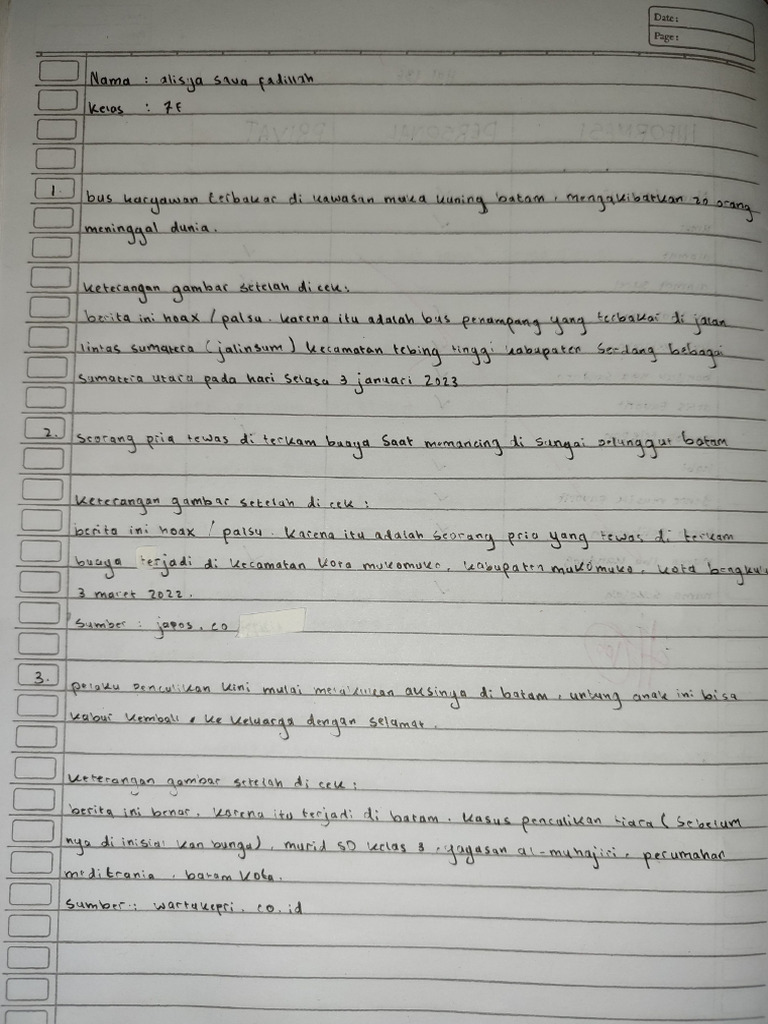 Date :
Page :
Nama : alisya sava fadillah
Kelas : 7F
1. bus karyawan terbakar di kawasan muka kuning batam, mengakibatkan 20 orang
meninggal dunia.
keterangan gambar setelah di cek :
berita ini hoax / palsu. karena itu adalah bus penampang yang terbakar di jalan
lintas sumatera (jalinsum) kecamatan tebing tinggi kabupaten serdang bebagai
sumatera utara pada hari selasa 3 januari 2023
2. seorang pria tewas di terkam buaya saat memancing di sungai pelunggut batam
keterangan gambar setelah di cek :
berita ini hoax / palsu. karena itu adalah seorang pria yang tewas di terkam
buaya terjadi di kecamatan kota mukomuko, kabupaten mukomuko, kota bengkulu
3 maret 2022.
Sumber : japos.co
3. pelaku penculikan kini mulai melakukan aksinya di batam, untung anak ini bisa
kabur kembali ke keluarga dengan selamat.
keterangan gambar setelah di cek :
berita ini benar. karena itu terjadi di batam. kasus penculikan tiara (sebelum
nya di inisial kan bunga), murid SD kelas 3, yayasan al-muhajiri, perumahan
meditrania, batam kota.
sumber : wartakepri.co.id